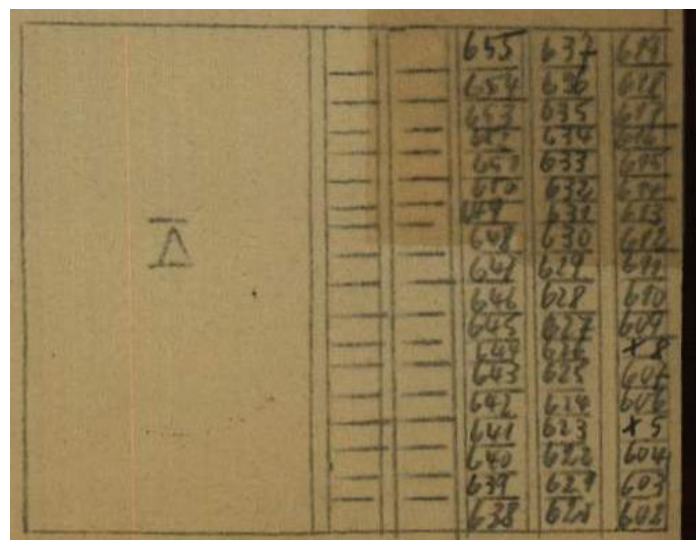 655 637 619
654 636 618
653 635 617
652 634 616
651 633 615
650 632 614
649 631 613
648 630 612
647 629 611
646 628 610
645 627 609
644 626 +8
643 625 607
642 624 606
641 623 +5
640 622 604
639 621 603
638 620 602